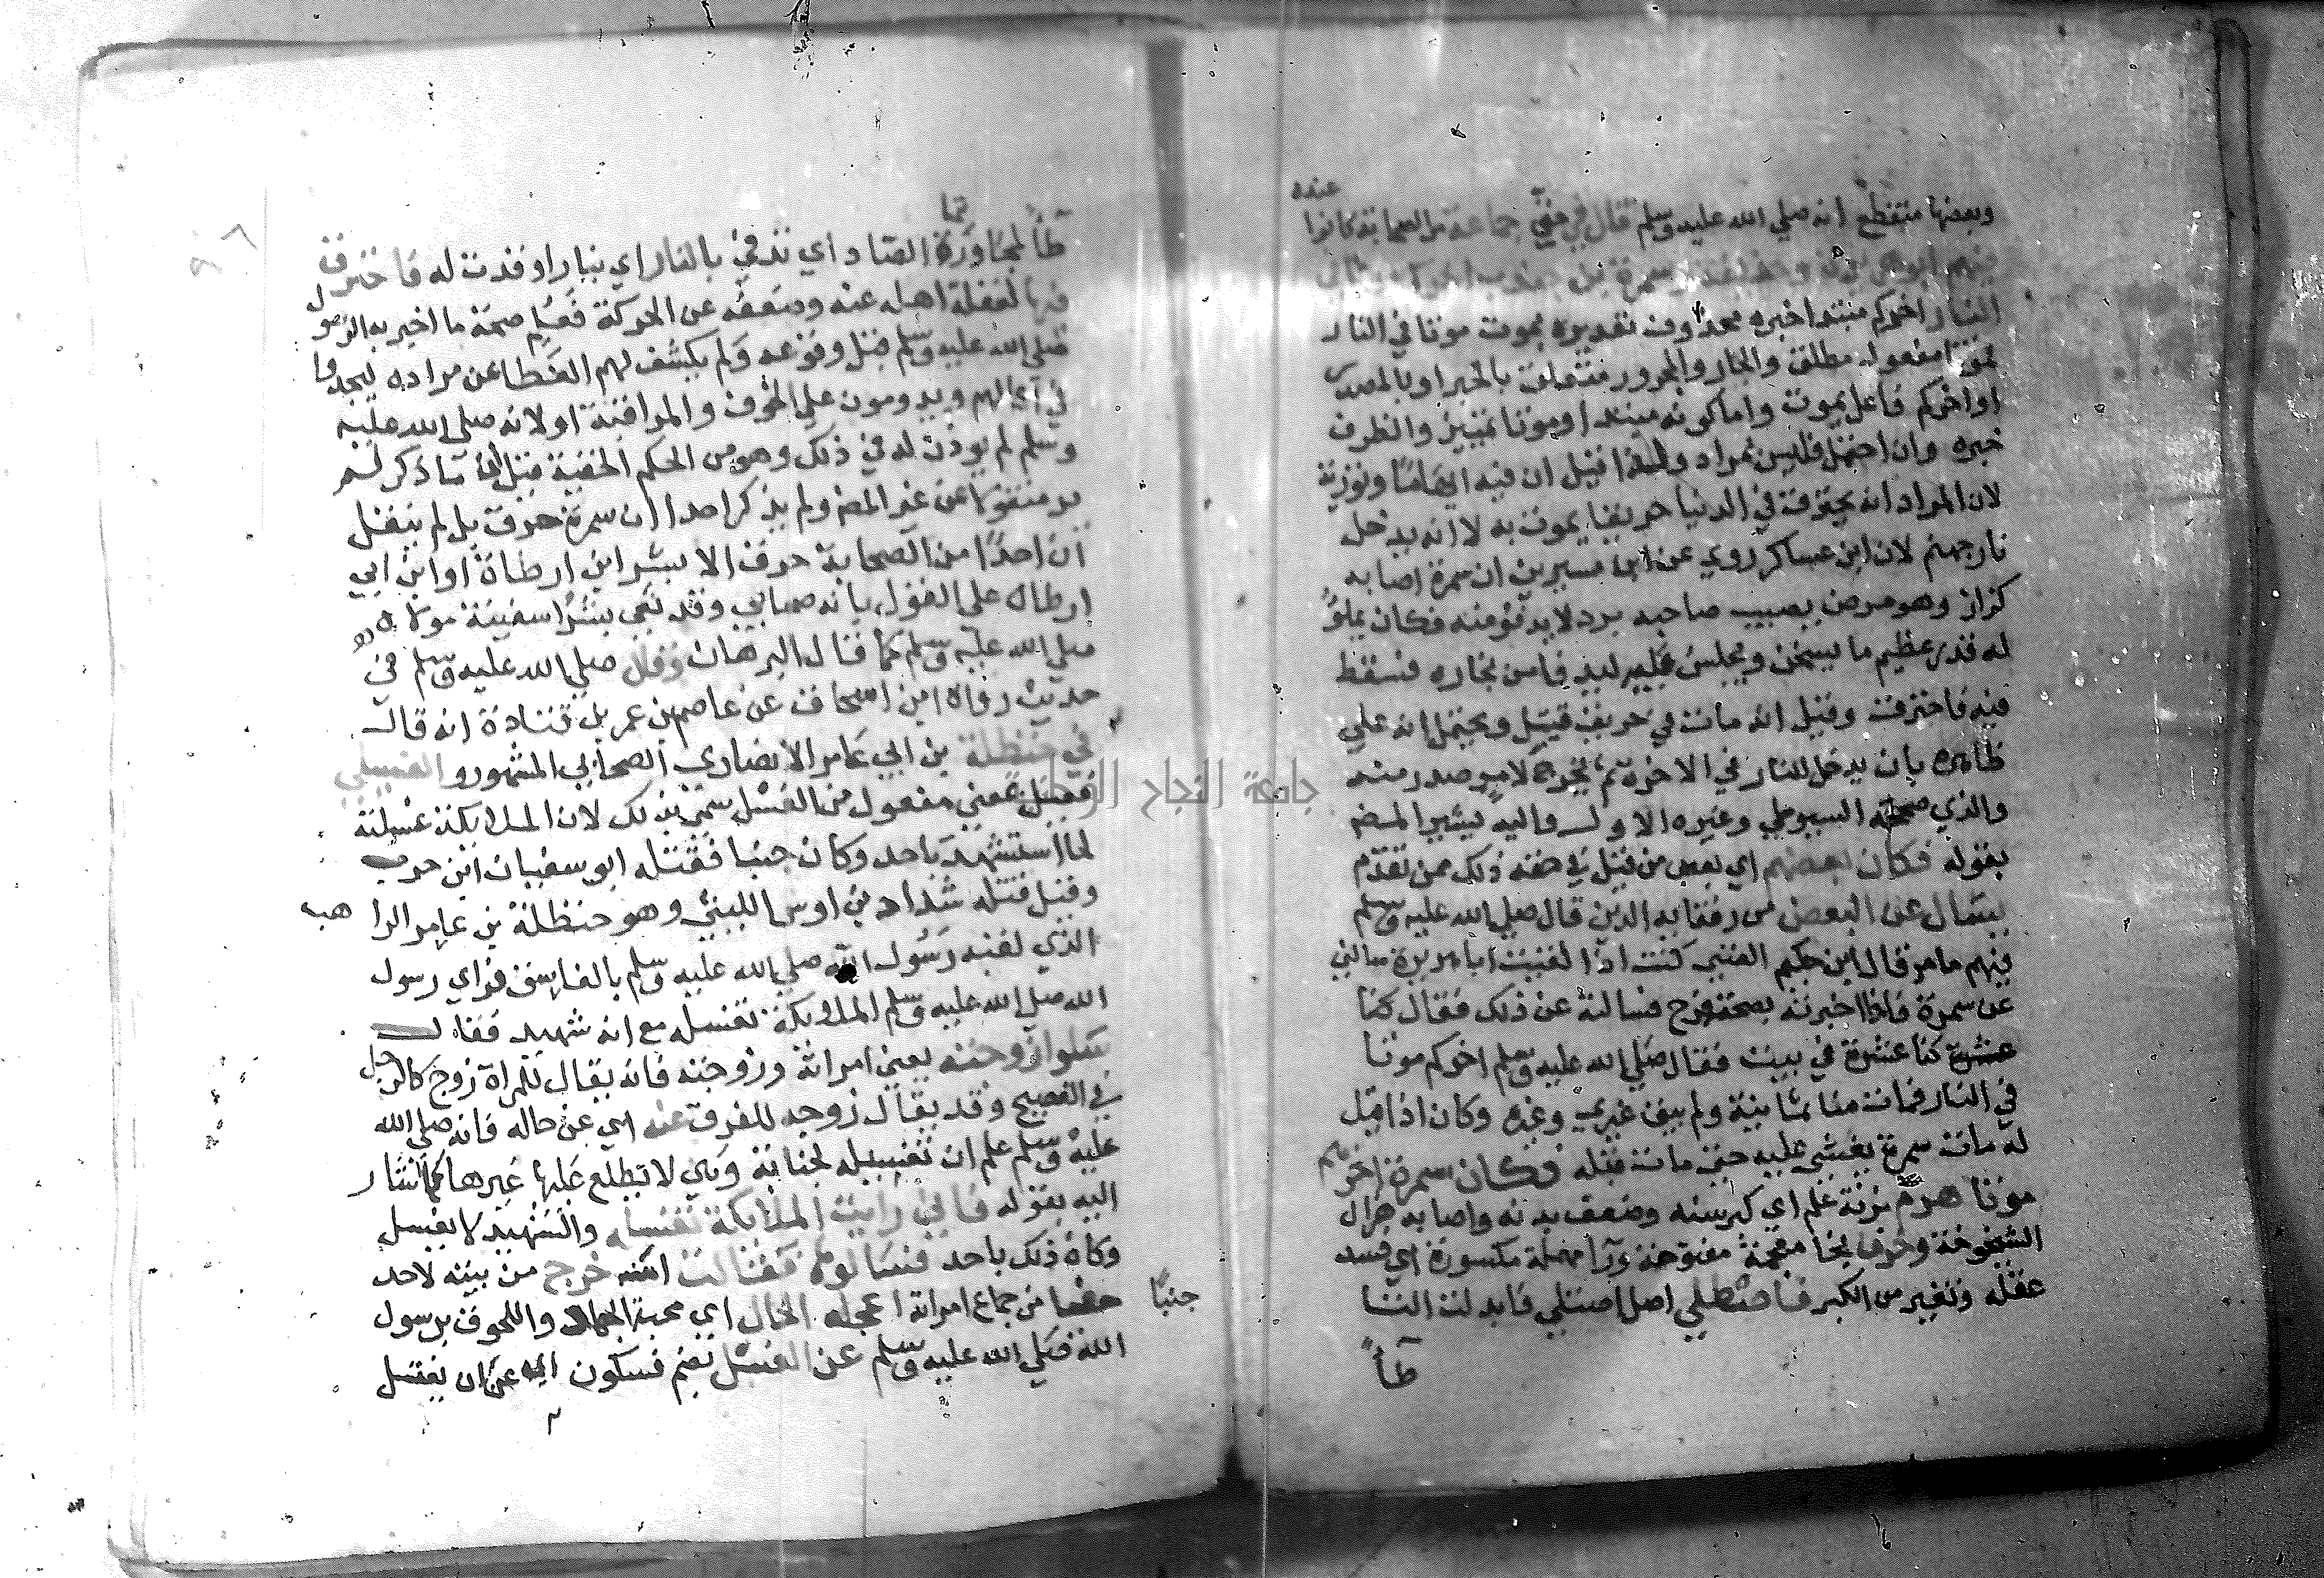 عنده
وبعضها منقطع انه صلي الله عليه وسلم قال في حق جماعة من الصحابة كانوا
منهم ابو هريرة وحذيفة وسمرة بن جندب اخركم موتا في
النار اخركم مبتدا خبره محذوف تقديره يموت موتا في النار
فموتا مفعول مطلق والجار والمجرور متعلق بالخبر او بالمصدر
او اخركم فاعل يموت واما كونه مبتدا وموتا تمييز والظرف
خبره وان احتمل فليس بمراد ولهذا قيل ان فيه ايهاما وتورية
لان المراد انه يحترق في الدنيا حريقا يموت به لا انه يدخل
نار جهنم لان ابن عساكر روي عن ابن سيرين ان سمرة اصابه
كزاز وهو مرض يصيب صاحبه برد لا يدفؤ منه فكان يملؤ
له قدر عظيم ما يسخن ويجلس عليه ليدفا من بخاره فسقط
فيه فاحترق وقيل انه مات في حريق قيل ويحتمل انه علي
ظاهره بان يدخل النار في الاخرة ثم يخرج لامر صدر منه
والذي صححه السيوطي وغيره الاول واليه يشير المصنف
بقوله فكان بعضهم اي بعض من قيل في حقه ذلك ممن تقدم
يسال عن البعض من رفقايه الذين قال صلي الله عليه وسلم
فيهم ما مر قال ابن حكيم الضبي كنت اذا لقيت ابا هريرة سالني
عن سمرة فاذا اخبرته بصحته فرح فسالته عن ذلك فقال كنا
عشرة كنا عشرة في بيت فقال صلي الله عليه وسلم اخركم موتا
في النار فمات منا ثمانية ولم يبق غيري وغيره وكان اذا قيل
له مات سمرة يغشي عليه حتي مات قبله فكان سمرة اخرهم
موتا هرم بزنة علم اي كبر سنه وضعف بدنه واصابه هزال
الشيخوخة وخرف بخا معجمة مفتوحة ورا مهملة مكسورة اي فسد
عقله وتغير من الكبر فاصطلي اصل اصتلي فابدلت التا
طآ
طآ لمجاورة الصاد اي تدفي بالنار اي بنار اوقدت له فاحترق
فيها لغفلة اهله عنه وضعفه عن الحركة فعلم صحة ما اخبر به الرسول
صلي الله عليه وسلم قبل وقوعه ولم يكشف لهم الغطا عن مراده ليجدوا
في اعمالهم ويدومون علي الخوف والمراقبة او لانه صلي الله عليه
وسلم لم يوذن له في ذلك وهو من الحكم الخفية قيل ما ذكر لم
ير منقولا عن غير المصنف ولم يذكر احد ان سمرة حرق بل لم ينقل
ان احدا من الصحابة حرق الا بسر ابن ارطاة او ابن ابي
ارطاة علي القول بانه صحابي وقد نفي بسرا سفينة مولاه
صلي الله عليه وسلم كما قال البرهان وقال صلي الله عليه وسلم في
حديث رواه ابن اسحاق عن عاصم بن عمر بن قتادة انه قال
في حنظلة بن ابي عامر الانصاري الصحابي المشهور والغسيل
فعيل بمعني مفعول من الغسل سمي بذلك لان الملايكة غسلته
لما استشهد باحد وكان جنبا فقتله ابو سفيان ابن حرب
وقيل قتله شداد بن اوس الليثي وهو حنظلة بن عامر الراهب
الذي لقبه رسول الله صلي الله عليه وسلم بالفاسق فراي رسول
الله صلي الله عليه وسلم الملايكة تغسله مع انه شهيد فقال
سلوا زوجته يعني امراته وزوجته فانه يقال للمراة زوج كالرجل
في الفصيح وقد يقال زوجه للفرق عنه اي عن حاله فانه صلي الله
عليه وسلم علم ان تغسيله لجنابة وهي لا يطلع عليها غيرها كما اشار
اليه بقوله فاني رايت الملايكة تغسله والشهيد لا يغسل
وكان ذلك باحد فسالوها فقالت انه خرج من بيته لاحد
جنبا من جماع امراته اعجله الحال اي محبة الجهاد واللحوق برسول
الله صلي الله عليه وسلم عن الغسل بضم فسكون اي عن ان يغتسل
جامعة النجاح الوطنية